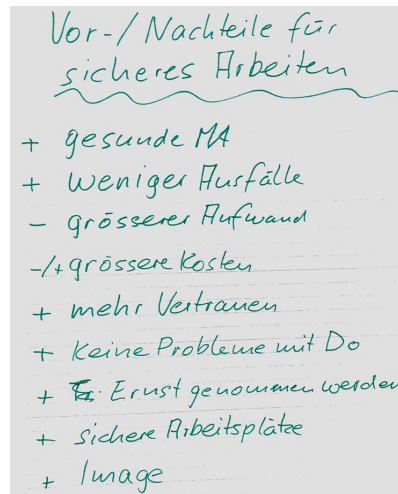 Vor-/Nachteile für
sicheres Arbeiten
+ gesunde MA
+ weniger Ausfälle
- grösserer Aufwand
-/+ grössere Kosten
+ mehr Vertrauen
+ Keine Probleme mit Do
+ Ernst genommen werden
+ sichere Arbeitsplätze
+ Image